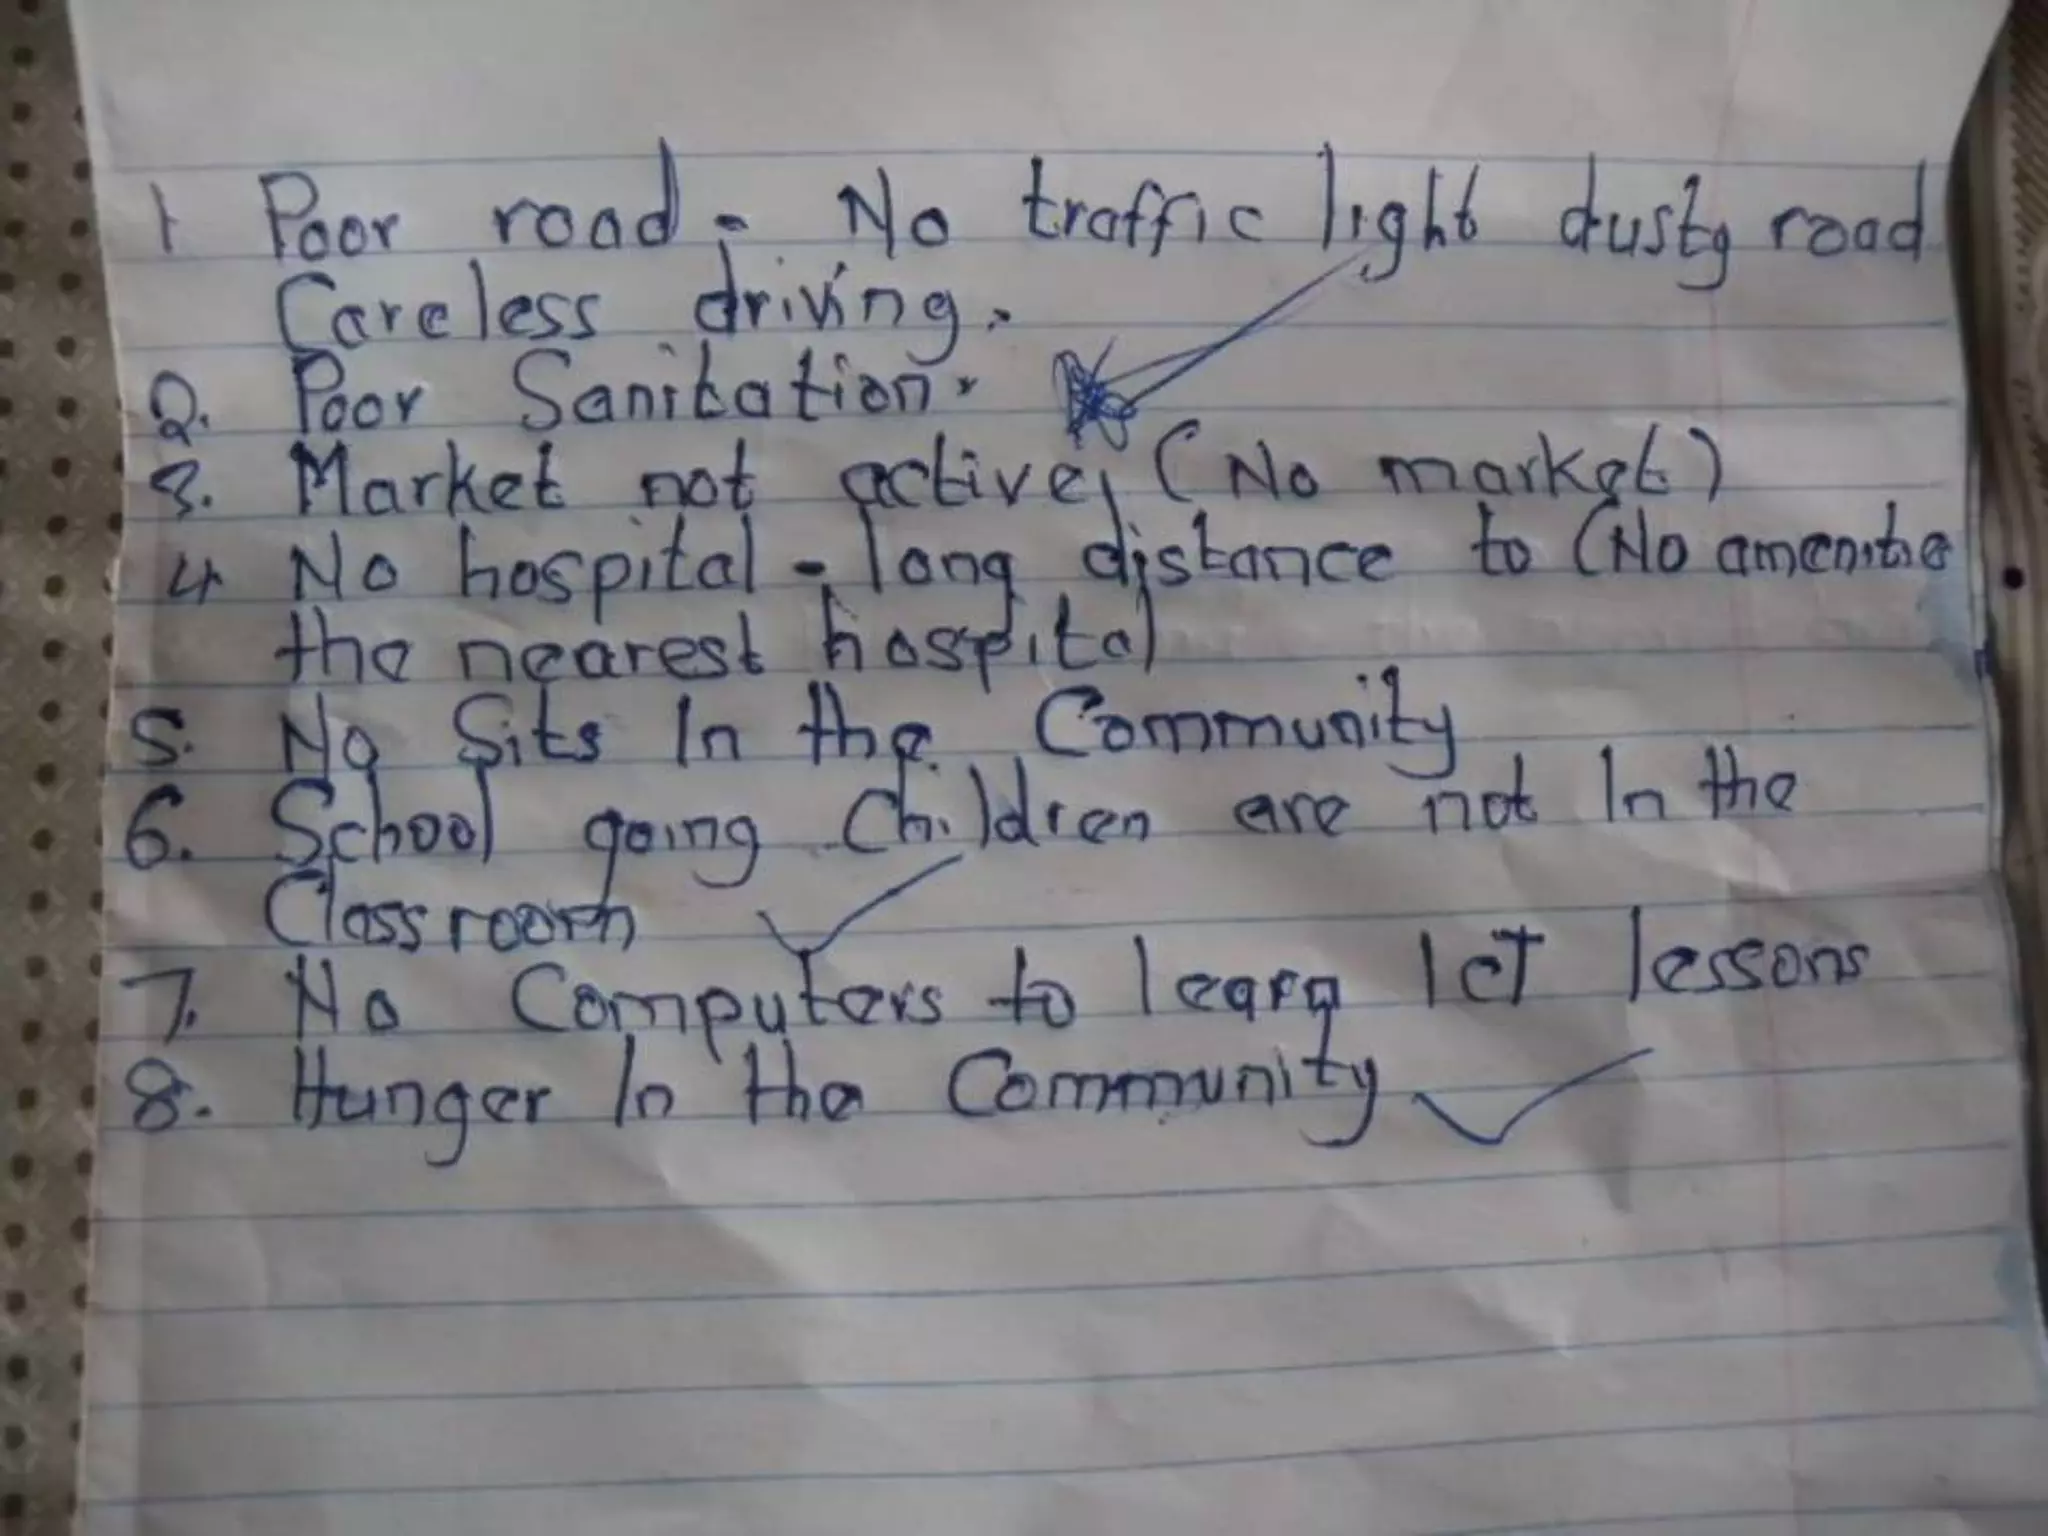 1 Poor road - No traffic light dusty road
Careless driving.
2. Poor Sanitation.
3. Market not active, (No market)
4 No hospital - long distance to (No amenitie
the nearest hospital
5. No Sits In the Community
6. School going Children are not In the
Classroom
7. No Computers to learn IcT lessons
8. Hunger In the Community